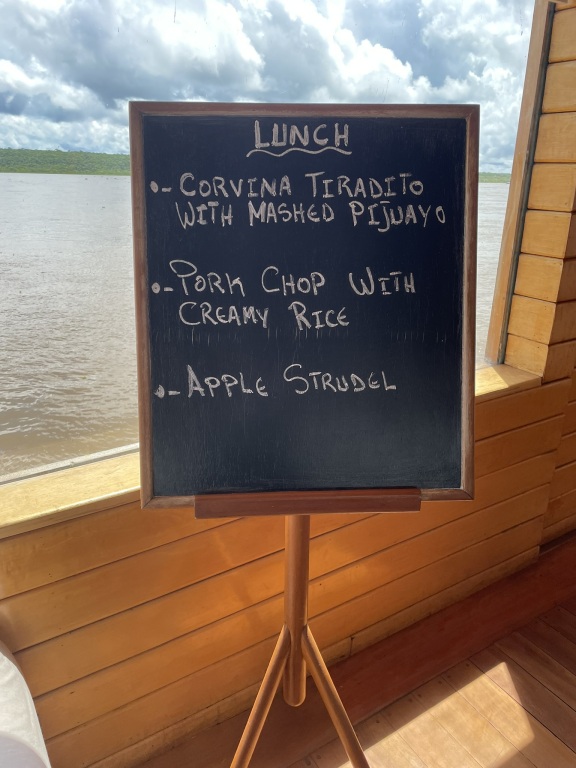 LUNCH
•- CORVINA TIRADITO
WITH MASHED PIJUAYO
•- PORK CHOP WITH
CREAMY RICE
•- APPLE STRUDEL